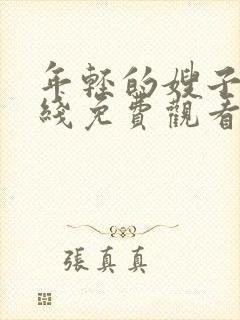 年轻的嫂子
綫免費觀看
張真真